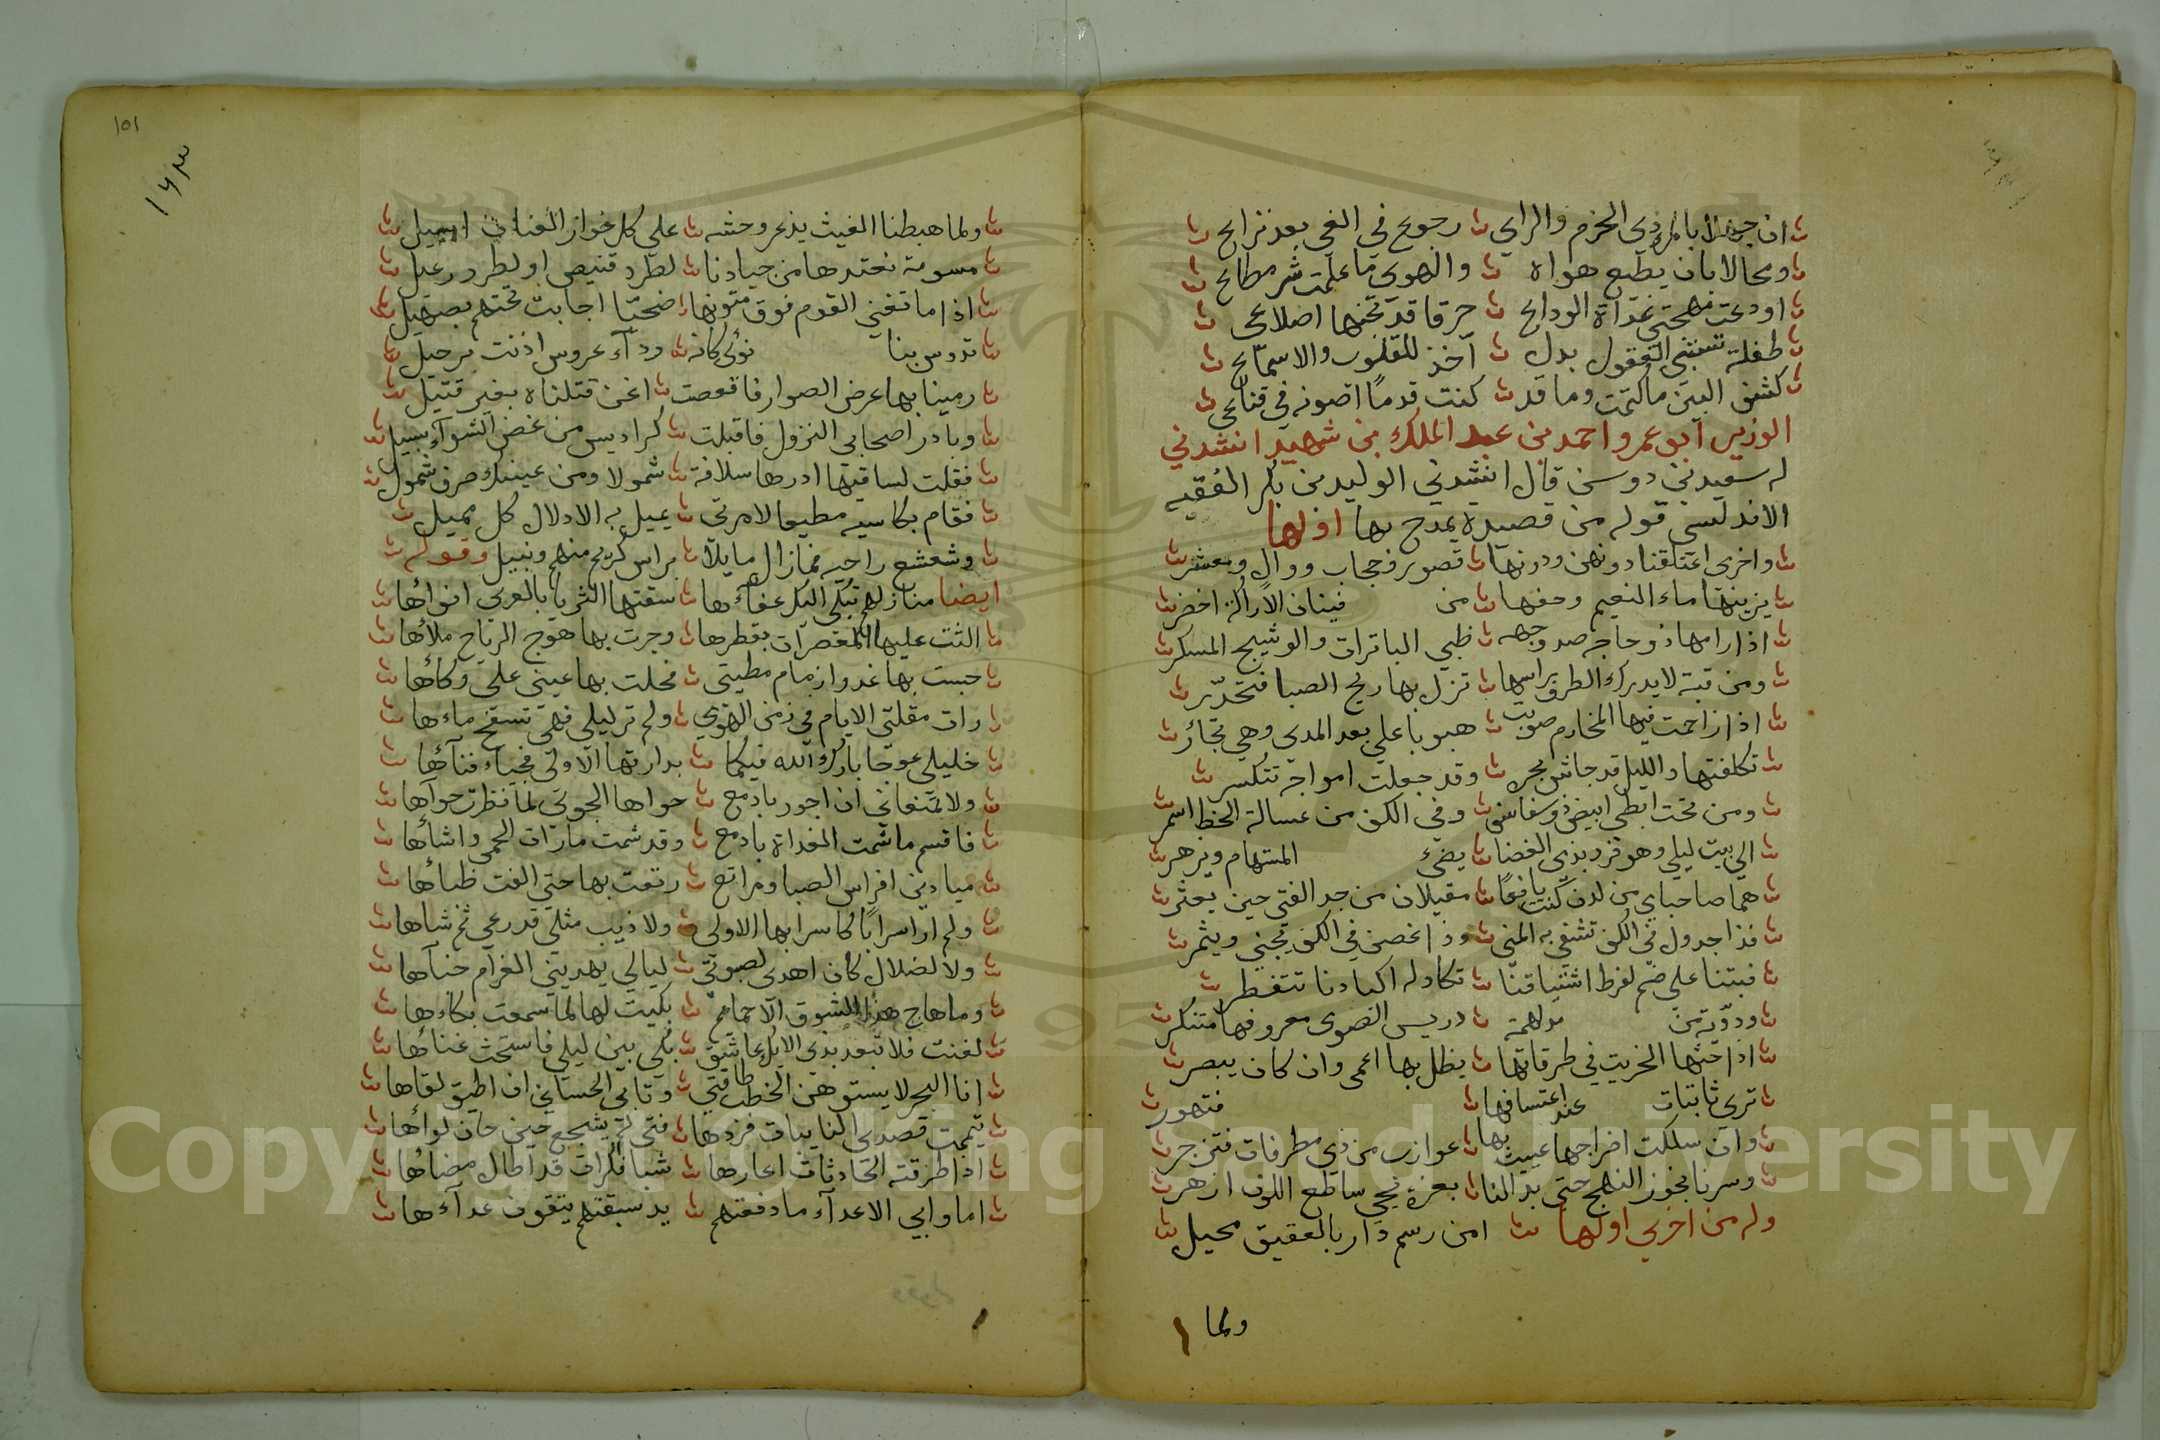 ان جهلا بالمرء ذي الحزم والراي رجوع في الغي بعد نزاع
ومحالا بان يطيع هواه والهوي ما علمت شر مطاع
اودعت مهجتي غداة الوداع حرقا قد تحنها اضلاعي
طفلة تستبي العقول بدل آخذ للقلوب والاسماع
كشف البين ما كتمت وما قد كنت قدما اصونه في قناعي
الوزير ابو عمرو احمد بن عبد الملك بن شهيد انشدني
له سعيد بن دوست قال انشدني الوليد بن بكر الفقيه
الاندلسي قوله من قصيدة يمدح بها اولها
واخري اعتلقنا دونهن ودونها قصور فحجاب ووال ومعشر
يزينها ماء النعيم وحفها من فينان الاراكة اخضر
اذا رامها ذو حاجه صد وجهه ظبي الباترات والوشيج المسكر
ومن قبة لا يدرك الطرف راسها تزل بها ريح الصبا فتحدر
اذا زاحمت فيها المخارم صوبت هبوبا علي بعد المدي وهي تجائر
تكلفتها والليل قد جاش بحره وقد جعلت امواجه تتكسر
ومن تحت ابطي ابيض ذو سفاسق وفي الكف من عسالة الخط اسمر
الي بيت ليلي وهو فرد بذي الغضا يضيء المستهام ويزهر
هما صاحباي من لدن كنت يافعا مقيلان من جد الفتي حين يعثر
فذا جدول في الكف تشفي به المني وذا غصن في الكف يجني ويثمر
فبتنا علي ضم لفرط اشتياقنا تكاد له اكبادنا تتفطر
ودوية من مدلهمة دريس الصوي معروفها متنكر
اذا حثها الخريت في طرقاتها يظل بها اعمي وان كان يبصر
تري ثابتات عند اعتسافها فتهور
وان سلكت افراجها عيث بها عوازب من ذي مطرفات فتزجر
وسرنا نجوز النهج حتي بدا لنا بعزة يحيي ساطع اللون ازهر
وله من اخري اولها امن رسم دار بالعقيق محيل
ولما
١٥١
ولما هبطنا الغيث يذعر وحشه علي كل خوار العنان اسيل
مسومة نعتدها من جيادنا لطرد قنيص او لطرد رعيل
اذا ما تغني القوم فوق متونها ضحيا اجابت تحتهم بصهيل
تدوس بنا نوي كانه رداء عروس اذنت برحيل
رمينا بها عرض الصوار فاقعصت اغن قتلناه بغير قتيل
وبادر اصحابي النزول فاقبلت كراديس من غض الشواء بسيل
فقلت لساقيها ادرها سلافة شمولا ومن عينيك صرف شمول
فقام بكاسيه مطيعا لامرتي يميل به الادلال كل مميل
وشعشع راحيه فما زال مايلا براس كريم منهم ونبيل وقوله
ايضا منازلهم تبكي اليك عفاءها سقتها الثريا بالعري انواءها
الثت عليها المعصرات بقطرها وجرت بها هوج الرياح ملاءها
حبست بها غدوا زمام مطيتي فحلت بها عيني علي وكاءها
رات مقلتي الايام في زمن الهوي ولم تر ليلي فهي تسفح ماءها
خليلي عوجا بارك الله فيكما بدارتها الاولي فحيا فناءها
ولا تمنعاني ان اجود بادمع حواها الجوي لما نظرت حواءها
فاقسم ما شمت الغداة بادمع وقد شمت ما رات الحمي واشاءها
ميادين افراس الصبا ومراتع رتعت بها حتي الفت ظباءها
ولم ار اسرابا كاسرابها الاولي ولا ذيب مثلي قد رعي ثم شاءها
ولا لضلال كان اهدي لصبوتي ليالي يهديني الغرام خباءها
وما هاج هذا الشوق الا حمايم بكيت لها لما سمعت بكاءها
لغنت فلا تبعد بذي الايك عاشق بكي بين ليلي فاستحث غناءها
انا البحر لا يستوهن الخطب طاقتي وتابي الحسان ان اطيق لقاءها
تيممت قصدي النايبات فردها فتي لم يشجع حين حان لواءها
اذا طرقته الحادثات اعارها شبا فكرات قد اطال مضاءها
اما وابي الاعداء ما دفعتهم يد سبقتهم يتقون عداءها
وقوله
Copyright © King Saud University